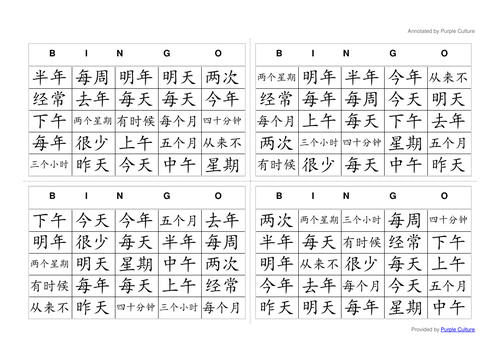 Annotated by Purple Culture
B I N G O
半年 每周 明年 明天 两次
经常 去年 每天 每天 今年
下午 两个星期 有时候 每个月 四十分钟
每年 很少 上午 五个月 从来不
三个小时 昨天 今天 中午 星期
B I N G O
两个星期 明年 半年 今年 从来不
经常 每年 每周 今天 明天
每个月 上午 每天 下午 去年
两次 三个小时 四十分钟 星期 五个月
有时候 很少 每天 昨天 中午
B I N G O
下午 今天 今年 五个月 去年
明年 很少 每天 半年 每周
两个星期 明天 星期 中午 两次
有时候 每年 每天 上午 经常
从来不 昨天 四十分钟 三个小时 每个月
B I N G O
两次 两个星期 三个小时 每周 四十分钟
半年 每天 有时候 经常 下午
明年 从来不 很少 每天 上午
今年 去年 每个月 今天 五个月
昨天 明天 每年 星期 中午
Provided by Purple Culture